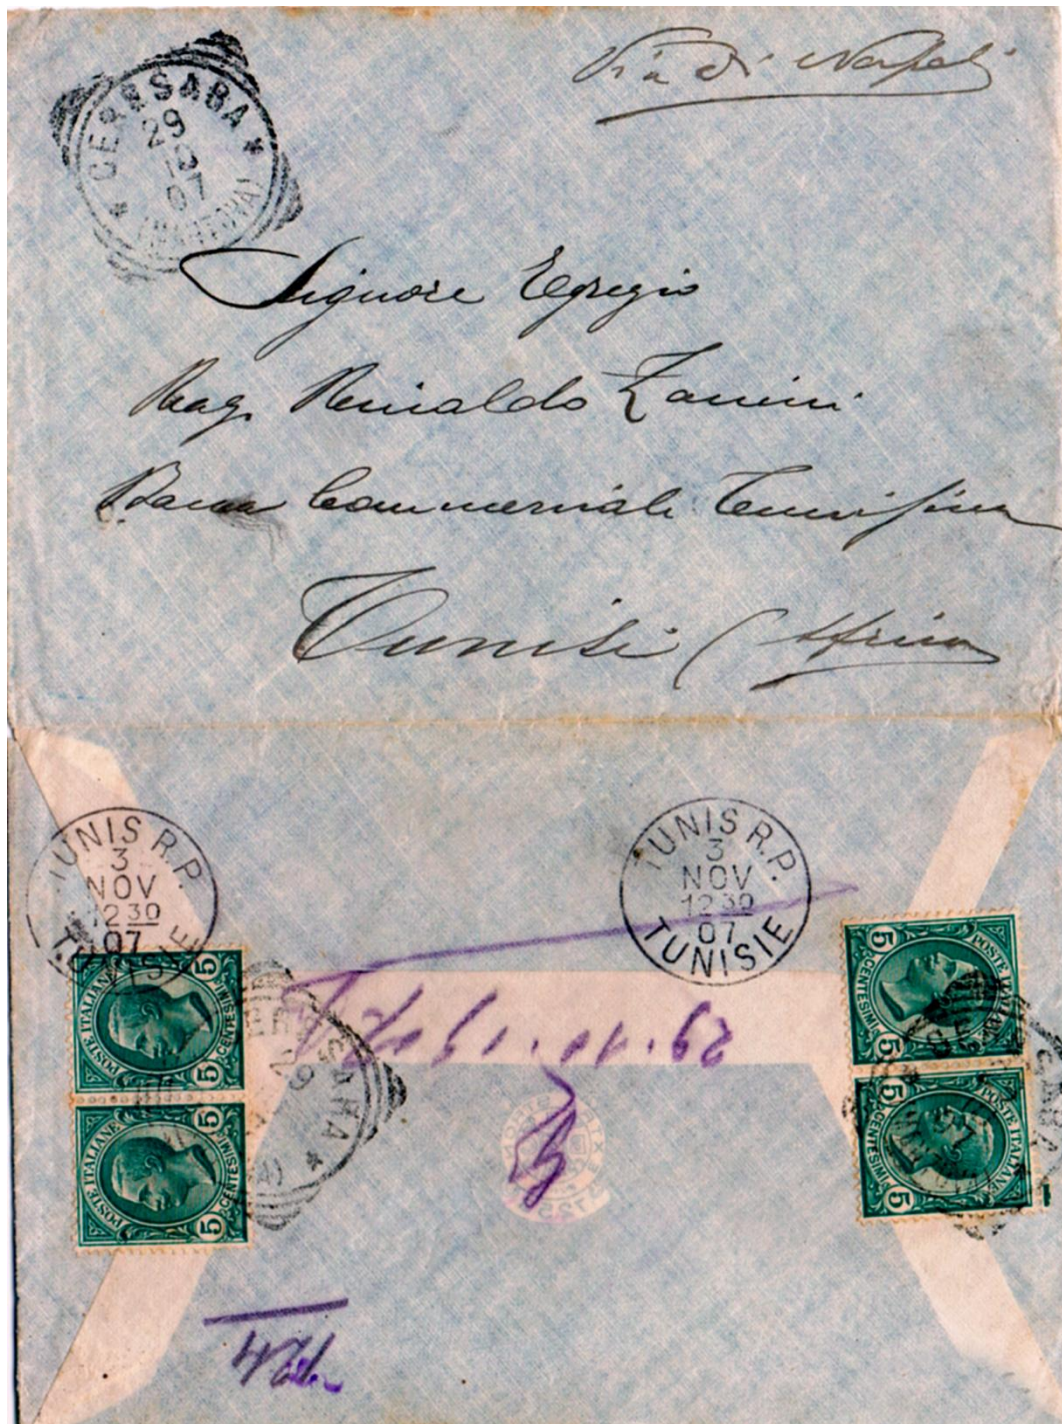 Via di Napoli
CERESARA
29
10
07
(MANTOVA)
Signore Egregio
Rag. Rinaldo Zanini
Banca Commerciale Tunisina
Tunisi (Africa
TUNIS R.P.
3
NOV
12 30
07
TUNISIE
TUNIS R.P.
3
NOV
12 30
07
TUNISIE
POSTE ITALIANE
5 CENTESIMI 5
POSTE ITALIANE
5 CENTESIMI 5
POSTE ITALIANE
5 CENTESIMI 5
POSTE ITALIANE
5 CENTESIMI 5
29
29.10.1907